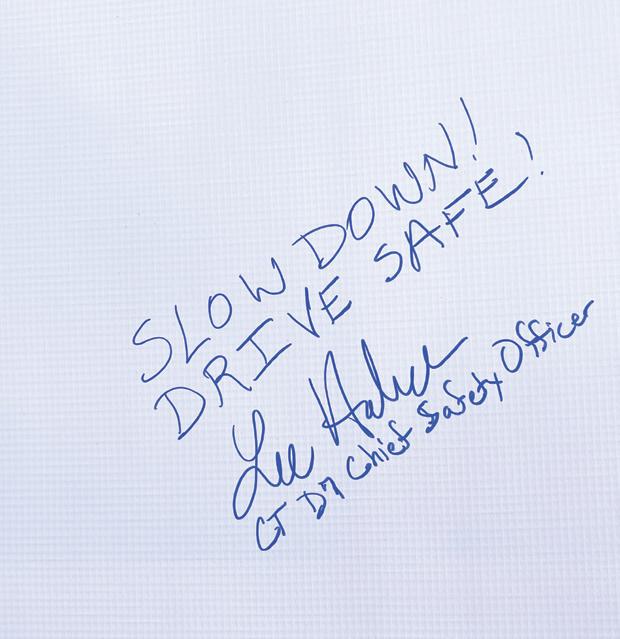 SLOW DOWN!
DRIVE SAFE!
Lee
CT Chief Safety Officer